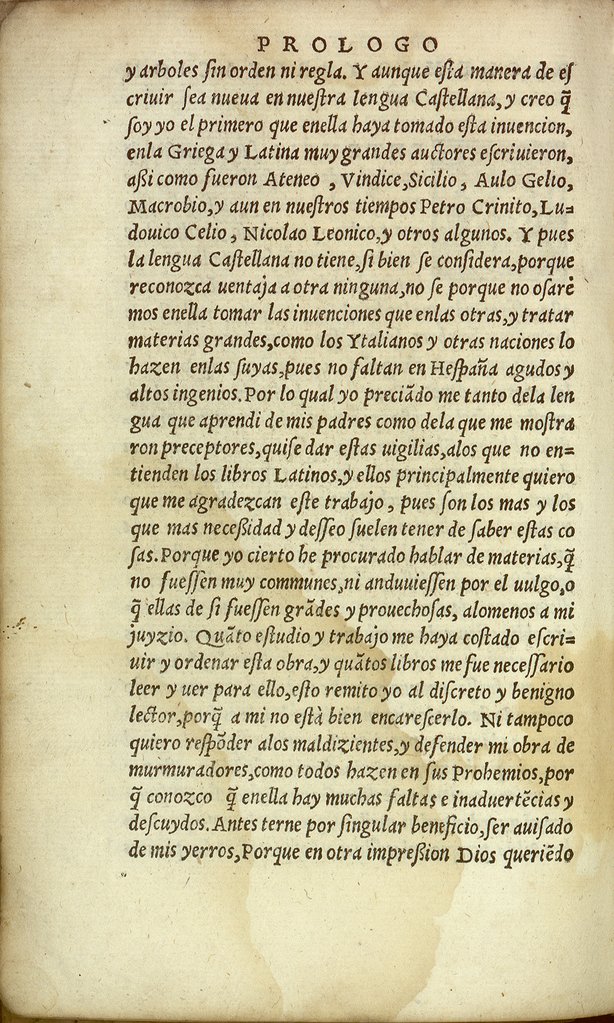 PROLOGO
y arboles ſin orden ni regla. Y aunque eſta manera de eſ
criuir ſea nueua en nueſtra lengua Caſtellana, y creo q̃
ſoy yo el primero que enella haya tomado eſta inuencion,
enla Griega y Latina muy grandes auctores eſcriuieron,
aßi como fueron Ateneo , Vindice, Sicilio , Aulo Gelio,
Macrobio, y aun en nueſtros tiempos Petro Crinito, Lu=
douico Celio , Nicolao Leonico, y otros algunos. Y pues
la lengua Caſtellana no tiene, ſi bien ſe conſidera, porque
reconozca uentaja a otra ninguna, no ſe porque no oſare
mos enella tomar las inuenciones que enlas otras, y tratar
materias grandes, como los Ytalianos y otras naciones lo
hazen enlas ſuyas, pues no faltan en Heſpaña agudos y
altos ingenios. Por lo qual yo preciãdo me tanto dela len
gua que aprendi de mis padres como dela que me moſtra
ron preceptores, quiſe dar eſtas uigilias, alos que no en=
tienden los libros Latinos, y ellos principalmente quiero
que me agradezcan eſte trabajo , pues ſon los mas y los
que mas neceßidad y deſſeo ſuelen tener de ſaber eſtas co
ſas. Porque yo cierto he procurado hablar de materias, q̃
no fueſſen muy communes, ni anduuieſſen por el uulgo, o
q̃ ellas de ſi fueſſen grãdes y prouechoſas, alomenos a mi
juyzio. Quãto eſtudio y trabajo me haya coſtado eſcri=
uir y ordenar eſta obra, y quãtos libros me fue neceſſario
leer y uer para ello, eſto remito yo al diſcreto y benigno
lector, porq̃ a mi no eſtà bien encareſcerlo. Ni tampoco
quiero reſpõder alos maldizientes, y defender mi obra de
murmuradores, como todos hazen en ſus Prohemios, por
q̃ conozco q̃ enella hay muchas faltas e inaduertẽcias y
deſcuydos. Antes terne por ſingular beneficio, ſer auiſado
de mis yerros, Porque en otra impreßion Dios queriẽdo